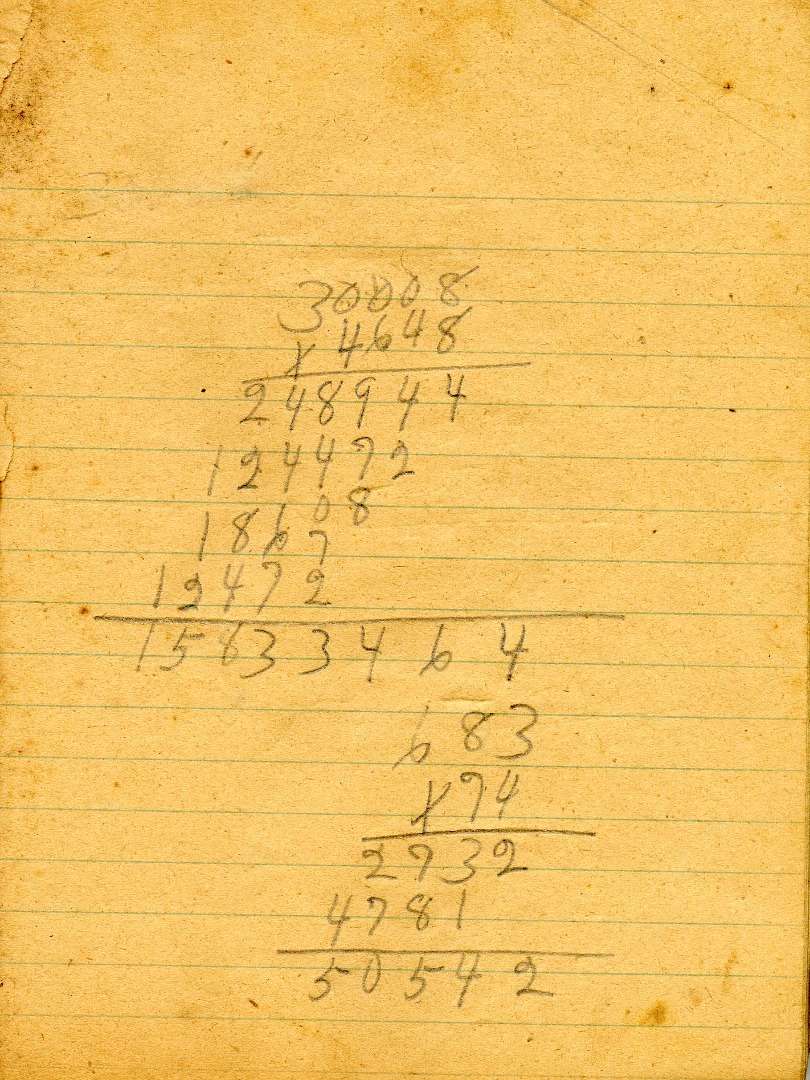 30008
x 4648
248944
124472
18608
1867
12472
15833464
683
x74
2732
4781
50542